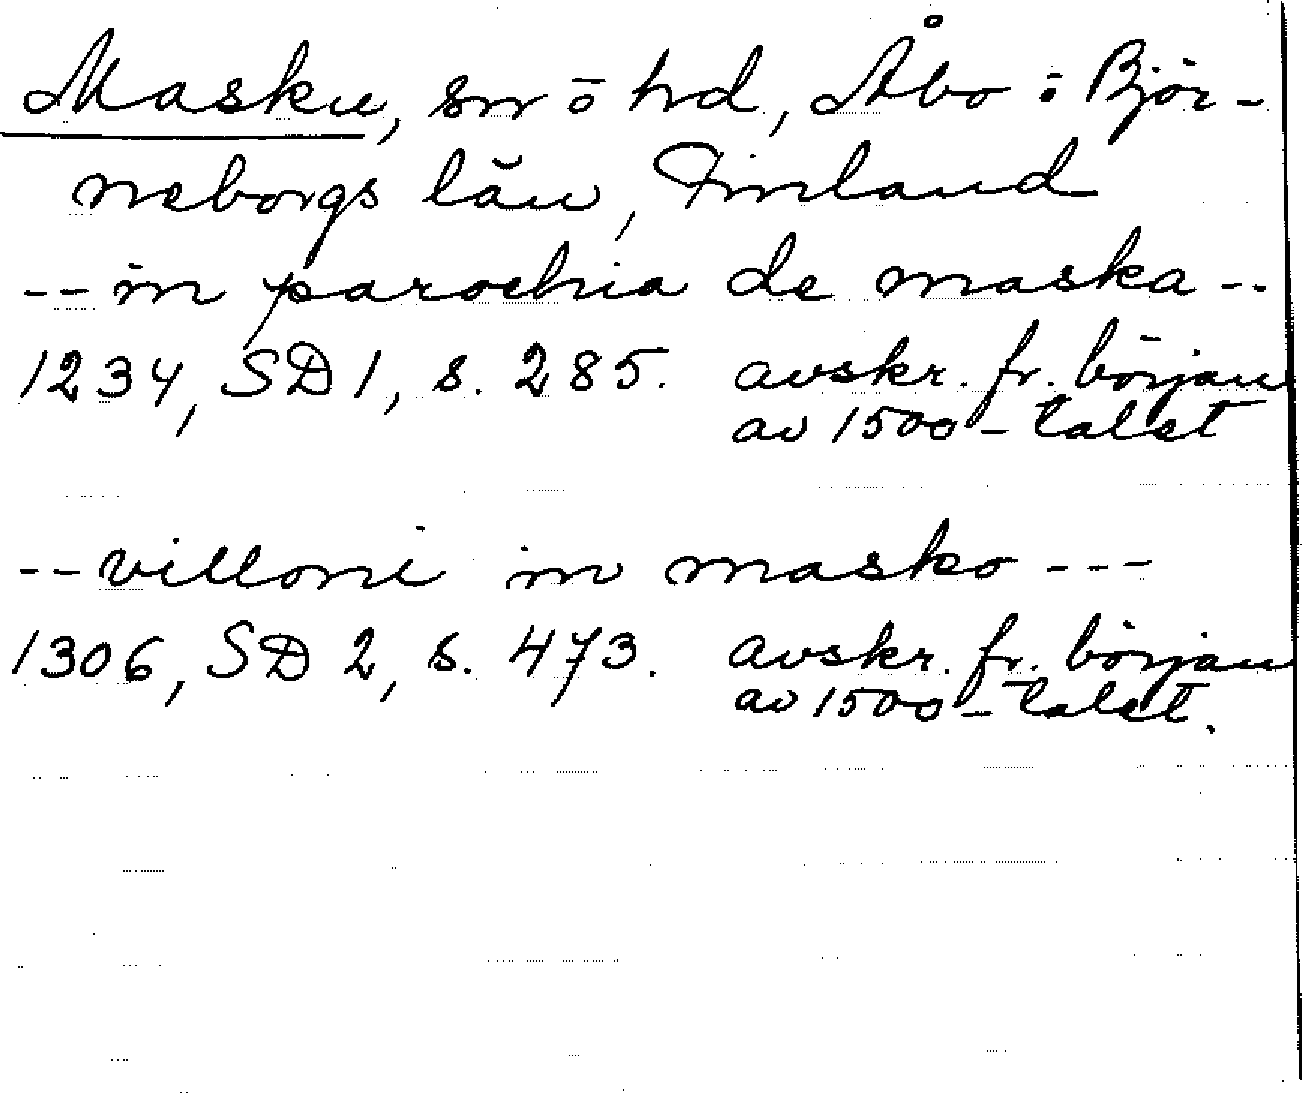 Masku, sn ō hd, Åbo ō Björ-
neborgs län, Finland
-- in parochia de maska --
1234, SD 1, s. 285. avskr. fr. början
av 1500-talet
-- villoni in masko ---
1306, SD 2, s. 473. avskr. fr. början
av 1500-talet.